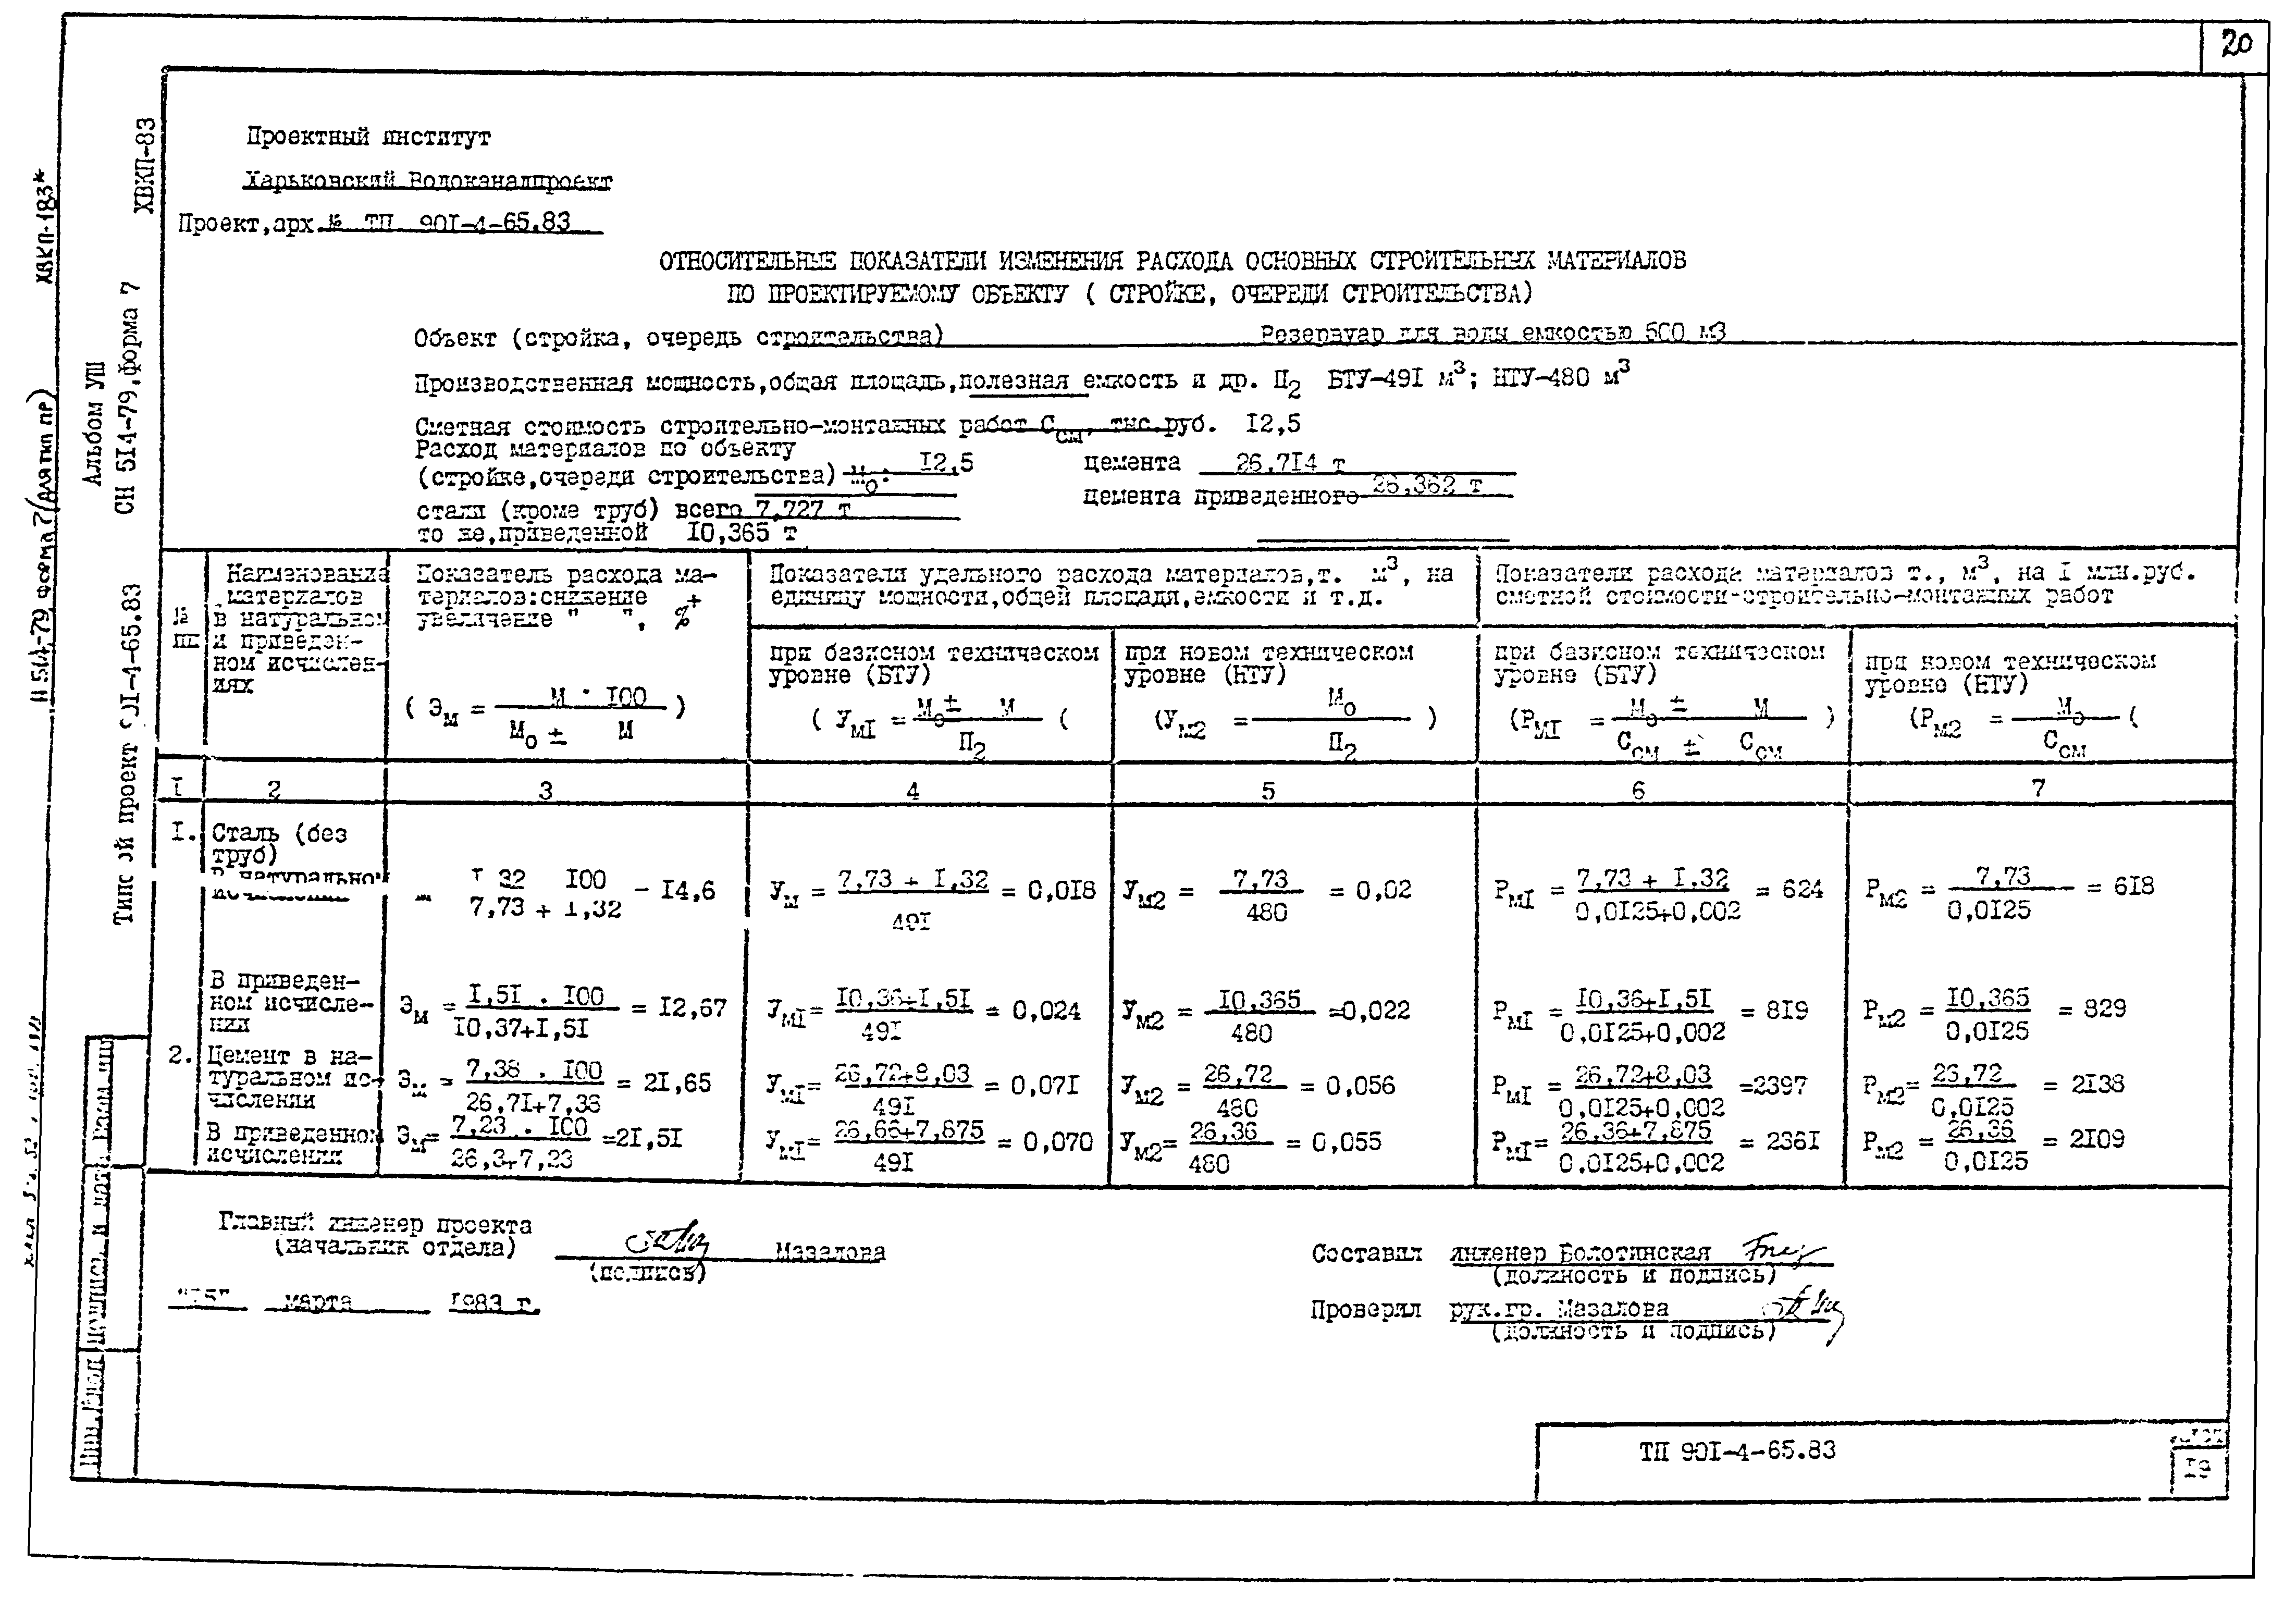 20
Проектный институт
Харьковский Водоканалпроект
Проект,арх № ТП 901-4-65.83
ХВКП-83
Альбом УШ
СН 514-79,форма 7
ОТНОСИТЕЛЬНЫЕ ПОКАЗАТЕЛИ ИЗМЕНЕНИЯ РАСХОДА ОСНОВНЫХ СТРОИТЕЛЬНЫХ МАТЕРИАЛОВ
ПО ПРОЕКТИРУЕМОМУ ОБЪЕКТУ ( СТРОЙКЕ, ОЧЕРЕДИ СТРОИТЕЛЬСТВА)
Объект (стройка, очередь строительства) Резервуар для воды емкостью 500 м3
Производственная мощность,общая площадь,полезная емкость и др. П2 БТУ-491 м³; НТУ-480 м³
Сметная стоимость строительно-монтажных работ Ссм, тыс.руб. 12,5
Расход материалов по объекту
(стройке,очереди строительства) Мо: 12,5
цемента 26,714 т
цемента приведенного 26,362 т
стали (кроме труб) всего 7,727 т
то же,приведенной 10,365 т
№ пп
Наименование
материалов
в натуральном
и приведен-
ном исчислен-
иях
Показатель расхода ма-
териалов:снижение +
увеличение " ", %
( Эм = М · 100 / Мо ± М )
Показатели удельного расхода материалов,т. м³, на
единицу мощности,общей площади,емкости и т.д.
при базисном техническом
уровне (БТУ)
( УмI = Мо ± М / П2 (
при новом техническом
уровне (НТУ)
(Ум2 = Мо / П2 )
Показатели расхода материалов т., м³, на I млн.руб.
сметной стоимости строительно-монтажных работ
при базисном техническом
уровне (БТУ)
(РмI = Мо ± М / Ссм ± Ссм )
при новом техническом
уровне (НТУ)
(Рм2 = Мо / Ссм (
I 2 3 4 5 6 7
I. Сталь (без
труб)
В натурально
исчислении
I,32 I00 / 7,73 + I,32 - I4,6
Ум = 7,73 + I,32 / 49I = 0,0I8
Ум2 = 7,73 / 480 = 0,02
РмI = 7,73 + I,32 / 0,0I25+0,002 = 624
Рм2 = 7,73 / 0,0I25 = 6I8
В приведен-
ном исчисле-
нии
Эм = I,5I . I00 / I0,37+I,5I = I2,67
УмI= I0,36+I,5I / 49I = 0,024
Ум2 = I0,365 / 480 =0,022
РмI = I0,36+I,5I / 0,0I25+0,002 = 8I9
Рм2 = I0,365 / 0,0I25 = 829
2. Цемент в на-
туральном ис-
числении
Эм = 7,38 . I00 / 26,7I+7,38 = 2I,65
УмI= 26,72+8,03 / 49I = 0,07I
Ум2 = 26,72 / 480 = 0,056
РмI = 26,72+8,03 / 0,0I25+0,002 =2397
Рм2= 23,72 / 0,0I25 = 2I38
В приведенном
исчислении
Эм= 7,23 . I00 / 26,3+7,23 =2I,5I
УмI= 26,66+7,875 / 49I = 0,070
Ум2= 26,36 / 480 = 0,055
РмI= 26,36+7,875 / 0,0I25+0,002 = 236I
Рм2 = 26,36 / 0,0I25 = 2I09
Главный инженер проекта
(начальник отдела) Мазалова
(подпись)
"I5" марта I983 г.
Составил инженер Болотинская
(должность и подпись)
Проверил рук.гр. Мазалова
(должность и подпись)
ТП 90I-4-65.83
лист
I9